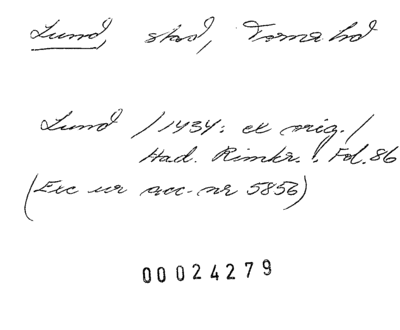 Lund, stad, Torna hd
Lund /1434: ex orig./
Had. Rimkr. Fol. 86
(Exc ur acc-nr 5856)
00024279